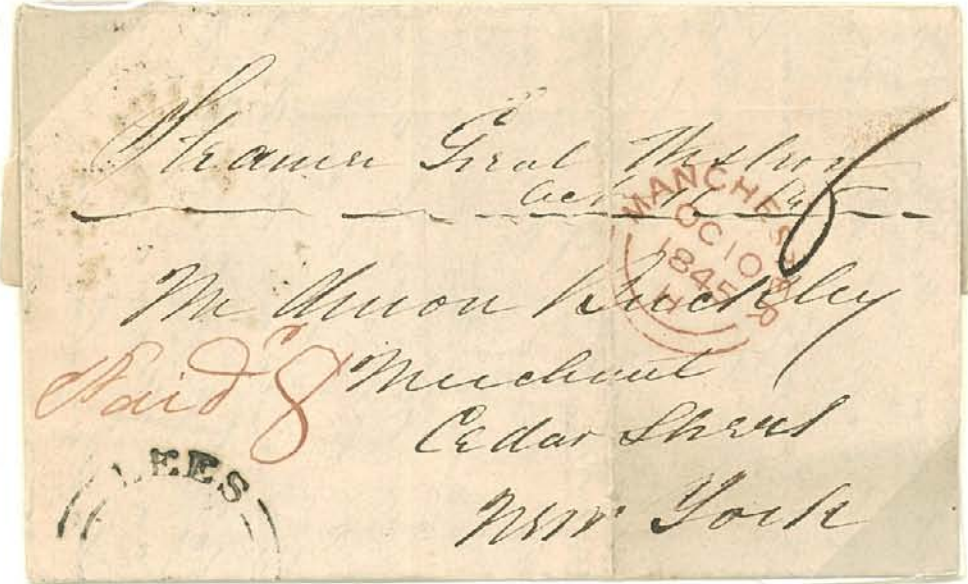 Steamer Great Western
Oct 11 1845
MANCHESTER
OC 10
1845
H
6
Mr Amon Buckley
Paid 8
Merchant
Cedar Street
New York
LEES